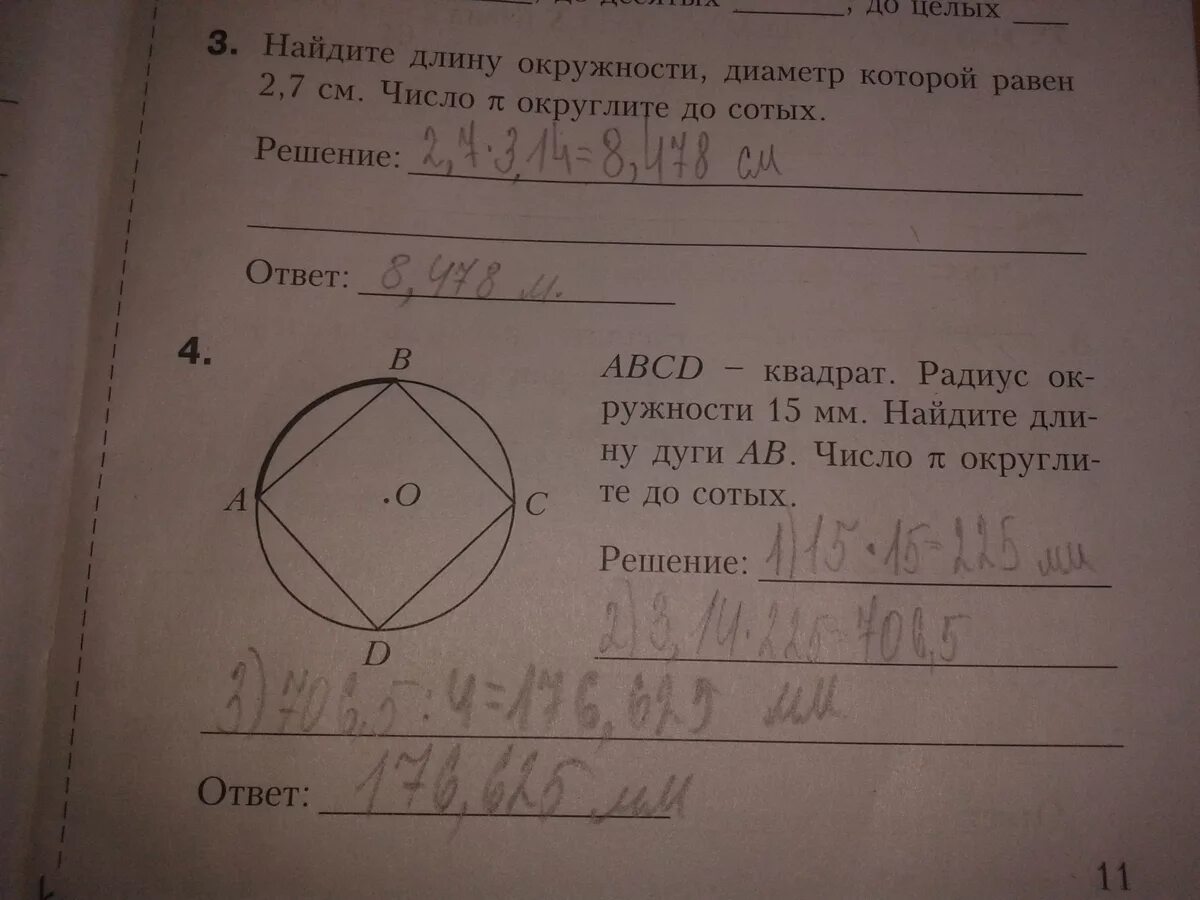 , до десятых ______, до целых ___
3. Найдите длину окружности, диаметр которой равен
2,7 см. Число π округлите до сотых.
Решение: 2,7·3,14=8,478 см
Ответ: 8,478 м.
4.
B
A
·O
C
D
ABCD – квадрат. Радиус ок-
ружности 15 мм. Найдите дли-
ну дуги AB. Число π округли-
те до сотых.
Решение: 1)15·15=225 мм
2)3,14·225=706,5
3)706,5:4=176,625 мм
Ответ: 176,625 мм
11